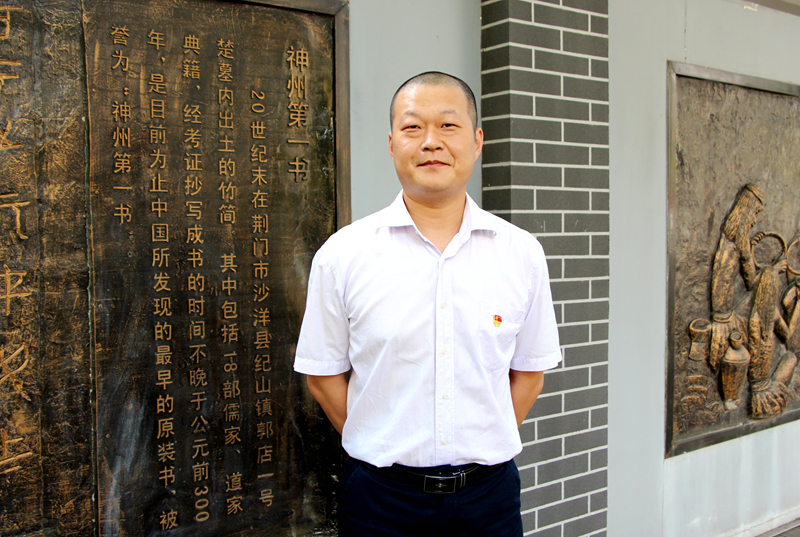 神州第一书
20世纪末在荆门市沙洋县纪山镇郭店一号
楚墓内出土的竹简 其中包括18部儒家、道家
典籍，经考证抄写成书的时间不晚于公元前300
年，是目前为止中国所发现的最早的原装书，被
誉为：神州第一书